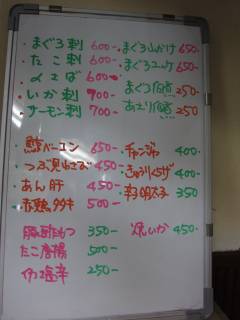 まぐろ刺 600- まぐろ山かけ 650-
たこ刺 600- まぐろユッケ 650-
〆さば 600-
いか刺 700- まぐろ 250
サーモン刺 700- あさり 250
鯨ベーコン 650- チャンジャ 400-
つぶ貝わさび 450- きゅうり 400
あん肝 450- 辛子明太子 350
赤鶏タタキ 500-
豚酢もつ 350- 焼いか 450-
たこ唐揚 500-
いか塩辛 250-